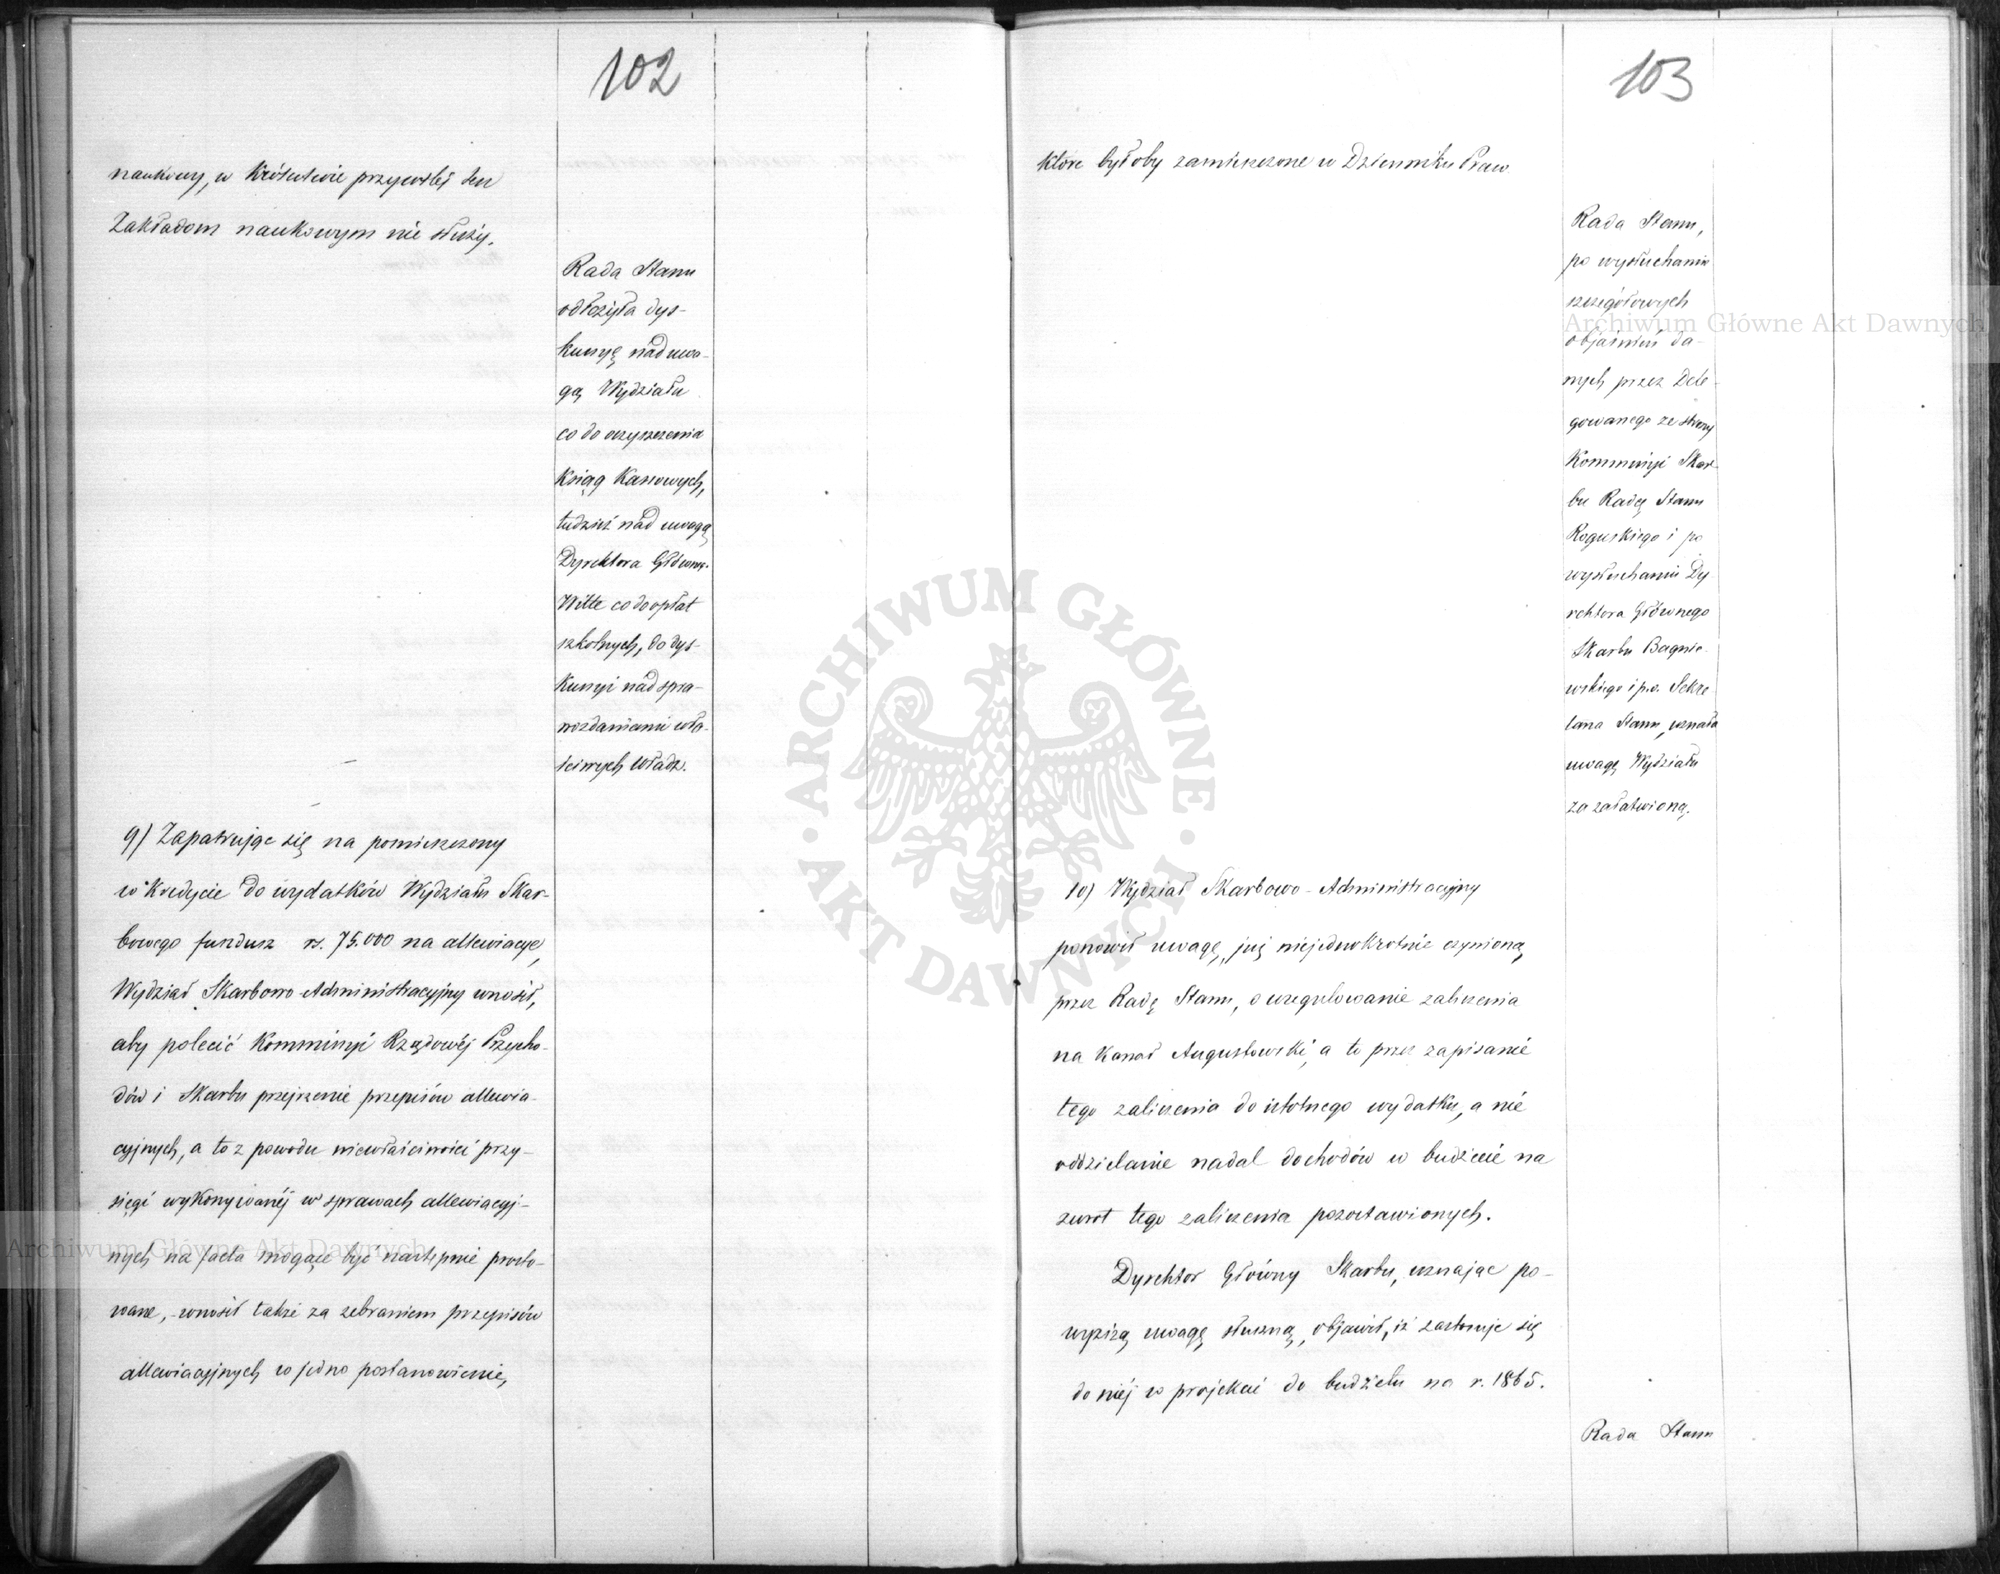 102
naukowy, w Królestwie przywilej ten
Zakładom naukowym nie służy.
Rada Stanu
odłożyła dys-
kussyę nad uwa-
gą Wydziału
co do oczyszczenia
Ksiąg Kassowych,
tudzież nad uwagą
Dyrektora Główne.
Witte co do opłat
szkolnych, do dys-
kussyi nad spra-
wozdaniami wła-
ściwych Władz.
9) Zapatrując się na pomieszczony
w Kredycie do wydatków Wydziału Skar-
bowego fundusz rs. 75.000 na allewiacye,
Wydział Skarbowo-Administracyjny wnosił,
aby polecić Kommissyi Rządowéj Przycho-
dów i Skarbu przejrzenie przepisów allewia-
cyjnych, a to z powodu niewłaściwości przy-
sięgi wykonywanéj w sprawach allewiacyj-
nych na facta mogące być następnie prosto-
wane, - wnosił także za zebraniem przepisów
allewiacyjnych w jedno postanowienie,
103
które byłoby zamieszczone w Dzienniku Praw
Rada Stanu,
po wysłuchaniu
szczegółowych
objaśnień da-
nych przez Dele-
gowanego ze strony
Kommissyi Skar-
bu Radcę Stanu
Roguskiego i po
wysłuchaniu Dy-
rektora Głównego
Skarbu Bagnie-
wskiego i p.o. Sekre
tarza Stanu, uznała
uwagę Wydziału
za załatwioną.
10) Wydział Skarbowo-Administracyjny
ponowił uwagę, już niejednokrotnie czynioną
przez Radę Stanu, o uregulowanie zaliczenia
na Kanał Augustowski, a to przez zapisanie
tego zaliczenia do istotnego wydatku, a nie
oddzielanie nadal dochodów w budżecie na
zwrot tego zaliczenia pozostawionych.
Dyrektor Główny Skarbu, uznając po-
wyższą uwagę słuszną, objawił, iż zastosuje się
do niéj w projekcie do budżetu na r. 1865.
Rada Stanu
Archiwum Główne Akt Dawnych
Archiwum Główne Akt Dawnych
ARCHIWUM GŁÓWNE · AKT DAWNYCH ·